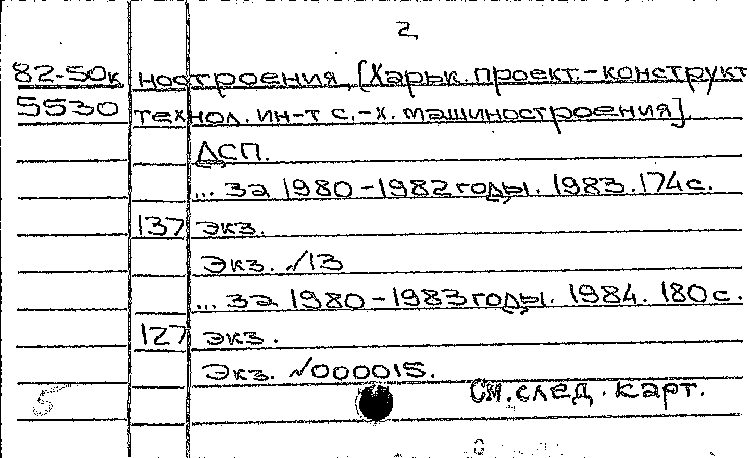 2
82-50к ностроения, [Харьк. проект.-конструкт
5530 технол. ин-т с.-х. машиностроения].
ДСП.
... за 1980-1982 годы. 1983. 174 с.
137 экз.
Экз. √13
... за 1980-1983 годы. 1984. 180 с.
127 экз.
Экз. √000015.
См. след. карт.
5